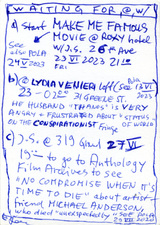 WAITING FOR @,W/
A) START MAKE ME FAMOUS
MOVIE @ ROXY hotel
See also POLA
W/J.G. 26th Ave
24 V 2023
23 VI 2023 21:15
FRI
b) @ LYDIA VENIERI left
See 17 VI 2023
23 - 02:00 31 GREELE ST.
HE HUSBAND "THANOS" is VERY
ANGRY + FRUSTRATED ABOUT STATUS OF WORLD
ON the CONSPIRATIONIST Fringe
c) J.S. @ 319 Grand 27 VI
19:00 to go to Anthology
Film Archives to see
"NO COMPROMISE WHEN IT'S
TIME TO DIE" about artist-
friend MICHAEL ANDERSON,
who died unexpectedly
SEE ON
29 VII 2023